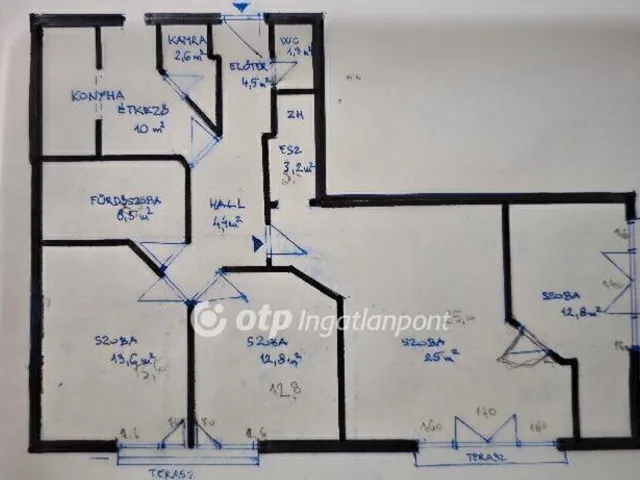 KAMRA
2,6 m²
ELŐTÉR
4,5 m²
WC
1,3 m²
KONYHA
ÉTKEZŐ
10 m²
ZH
FSZ
3,2 m²
FÜRDŐSZOBA
6,5 m²
HALL
4,4 m²
SZOBA
13,6 m²
SZOBA
12,8 m²
12,8
SZOBA
25 m²
SZOBA
12,8 m²
otp Ingatlanpont
140
TERASZ
TERASZ